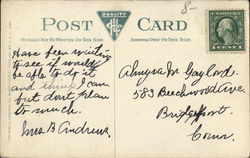 8-
POST CARD
QUALITY
MESSAGE MAY BE WRITTEN ON THIS SIDE
ADDRESS ONLY ON THIS SIDE
1 CENT 1
Have been waiting
to see if would
be able to do it
and think I can
but don't plan
to much.
B Andrews
Gaylord
583 Beechwood Ave.
Bridgeport
Conn.